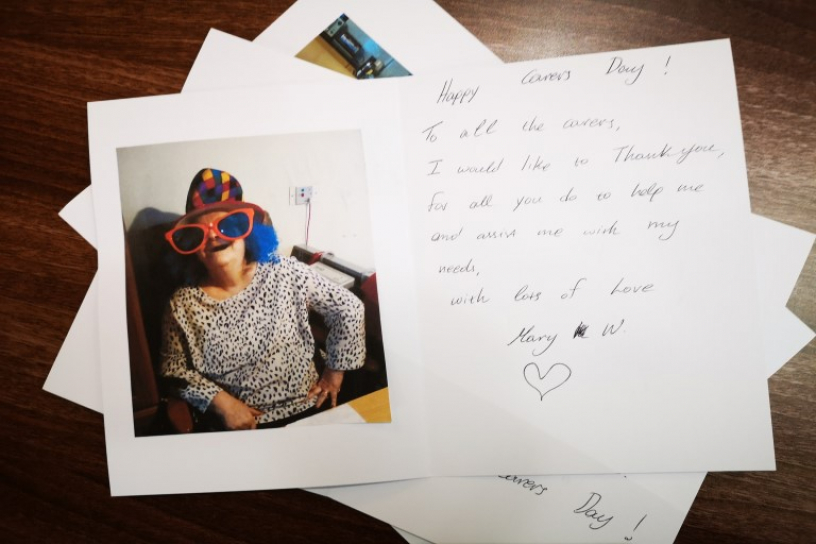 Happy Carers Day !
To all the carers,
I would like to Thank you,
For all you do to help me
and assist me with my
needs,
with lots of Love
Mary W.
Carers
Day !